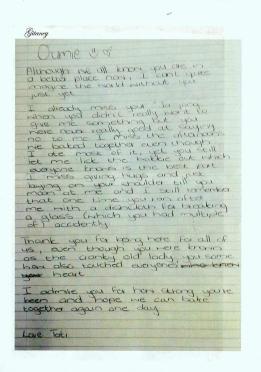 Gilancy
Oumie
Although we all know you are in
a better place now, I can't quite
imagine the world without you
just yet
I already miss you
when you didn't really want to
give me something but you
were never really good at saying
no to me I miss the afternoons
we baked together even though
I ate most of it yet you still
let me lick the bowl out which
everyone knows is the best part
I miss giving hugs and just
laying on your shoulder till you
moan at me and I still remember
that one time you ran after
me with a dishcloth for breaking
a glass (which you had multiple
of) accidently
Thank you for being here for all of
us, even though you were known
as the cranky old lady, you some
how also touched everyones
heart
I admire you for how strong you've
been and hope we can bake
together again one day
Love Tati